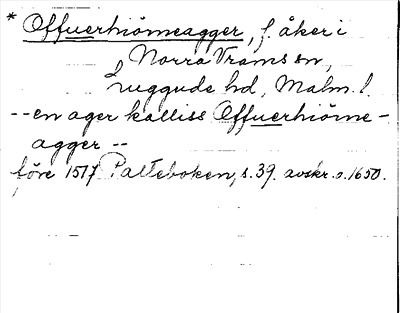 * Offuerhiömeagger, f. åker i
Norra Vrams sn,
Luggude hd, Malm. l.
-- en ager kalliss Offuerhiöme-
agger --
före 1517 Palteboken, s. 39. avskr. o. 1650.